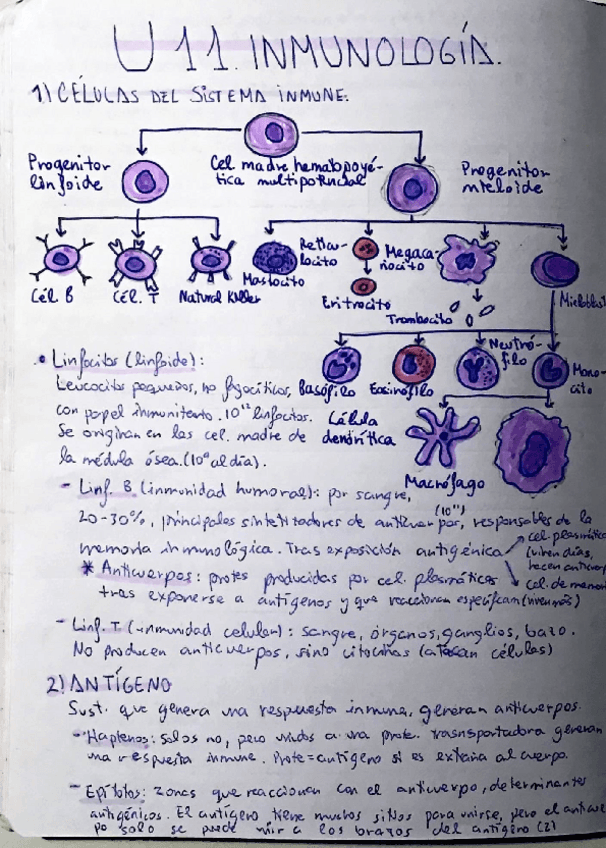 U 11. INMUNOLOGÍA.
1) CÉLULAS DEL SISTEMA INMUNE:
Progenitor
linfoide
Cel. madre hematopoyé-
tica multipotencial
Progenitor
mieloide
Cél. B
Cél. T
Natural Killer
Mastocito
Reticu-
locito
Eritrocito
Megaca-
riocito
Trombocito
Mieloblast
Basófilo
Eosinófilo
Neutró-
filo
Mono-
cito
Célula
dendrítica
Macrófago
• Linfocitos (linfoide):
Leucocitos pequeños, no fagocíticos,
con papel inmunitario. 10¹² linfocitos.
Se originan en las cel. madre de
la médula ósea. (10⁹ al día).
- Linf. B (inmunidad humoral): por sangre,
20-30%, principales sintetizadores de anticuerpos, responsables de la
(10¹¹)
memoria inmunológica. Tras exposición antigénica
cel. plasmática
(viven días,
hacen anticuerp
cel. de memori
(viven más)
* Anticuerpos: protes producidas por cel. plasmáticas
tras exponerse a antígenos y que reaccionan específicam
- Linf. T (inmunidad celular): sangre, órganos, ganglios, bazo.
No producen anticuerpos, sino citocinas (atacan células)
2) ANTÍGENO
Sust. que genera una respuesta inmune, generan anticuerpos.
- Haptenos: solos no, pero unidos a una prote. transportadora generan
una respuesta inmune. Prote = antígeno si es extraña al cuerpo.
- Epítotos: zonas que reaccionan con el anticuerpo, determinantes
antigénicos. El antígeno tiene muchos sitios para unirse, pero el anticuer
po solo se puede unir a los brazos del antígeno (2)